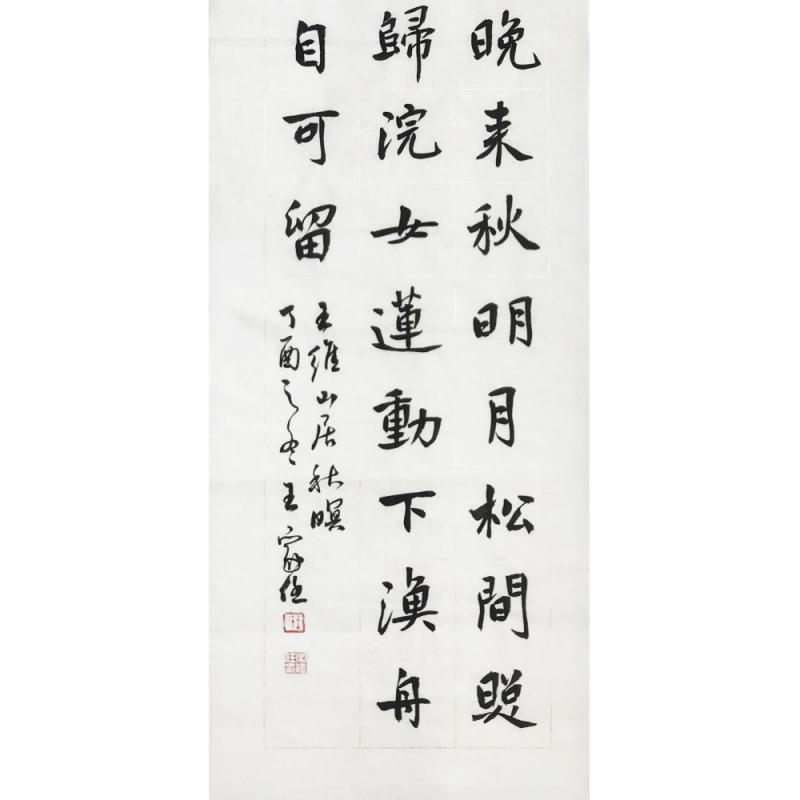 晚来秋明月松間照
歸浣女蓮動下漁舟
自可留
王維山居秋暝
丁酉之冬王家